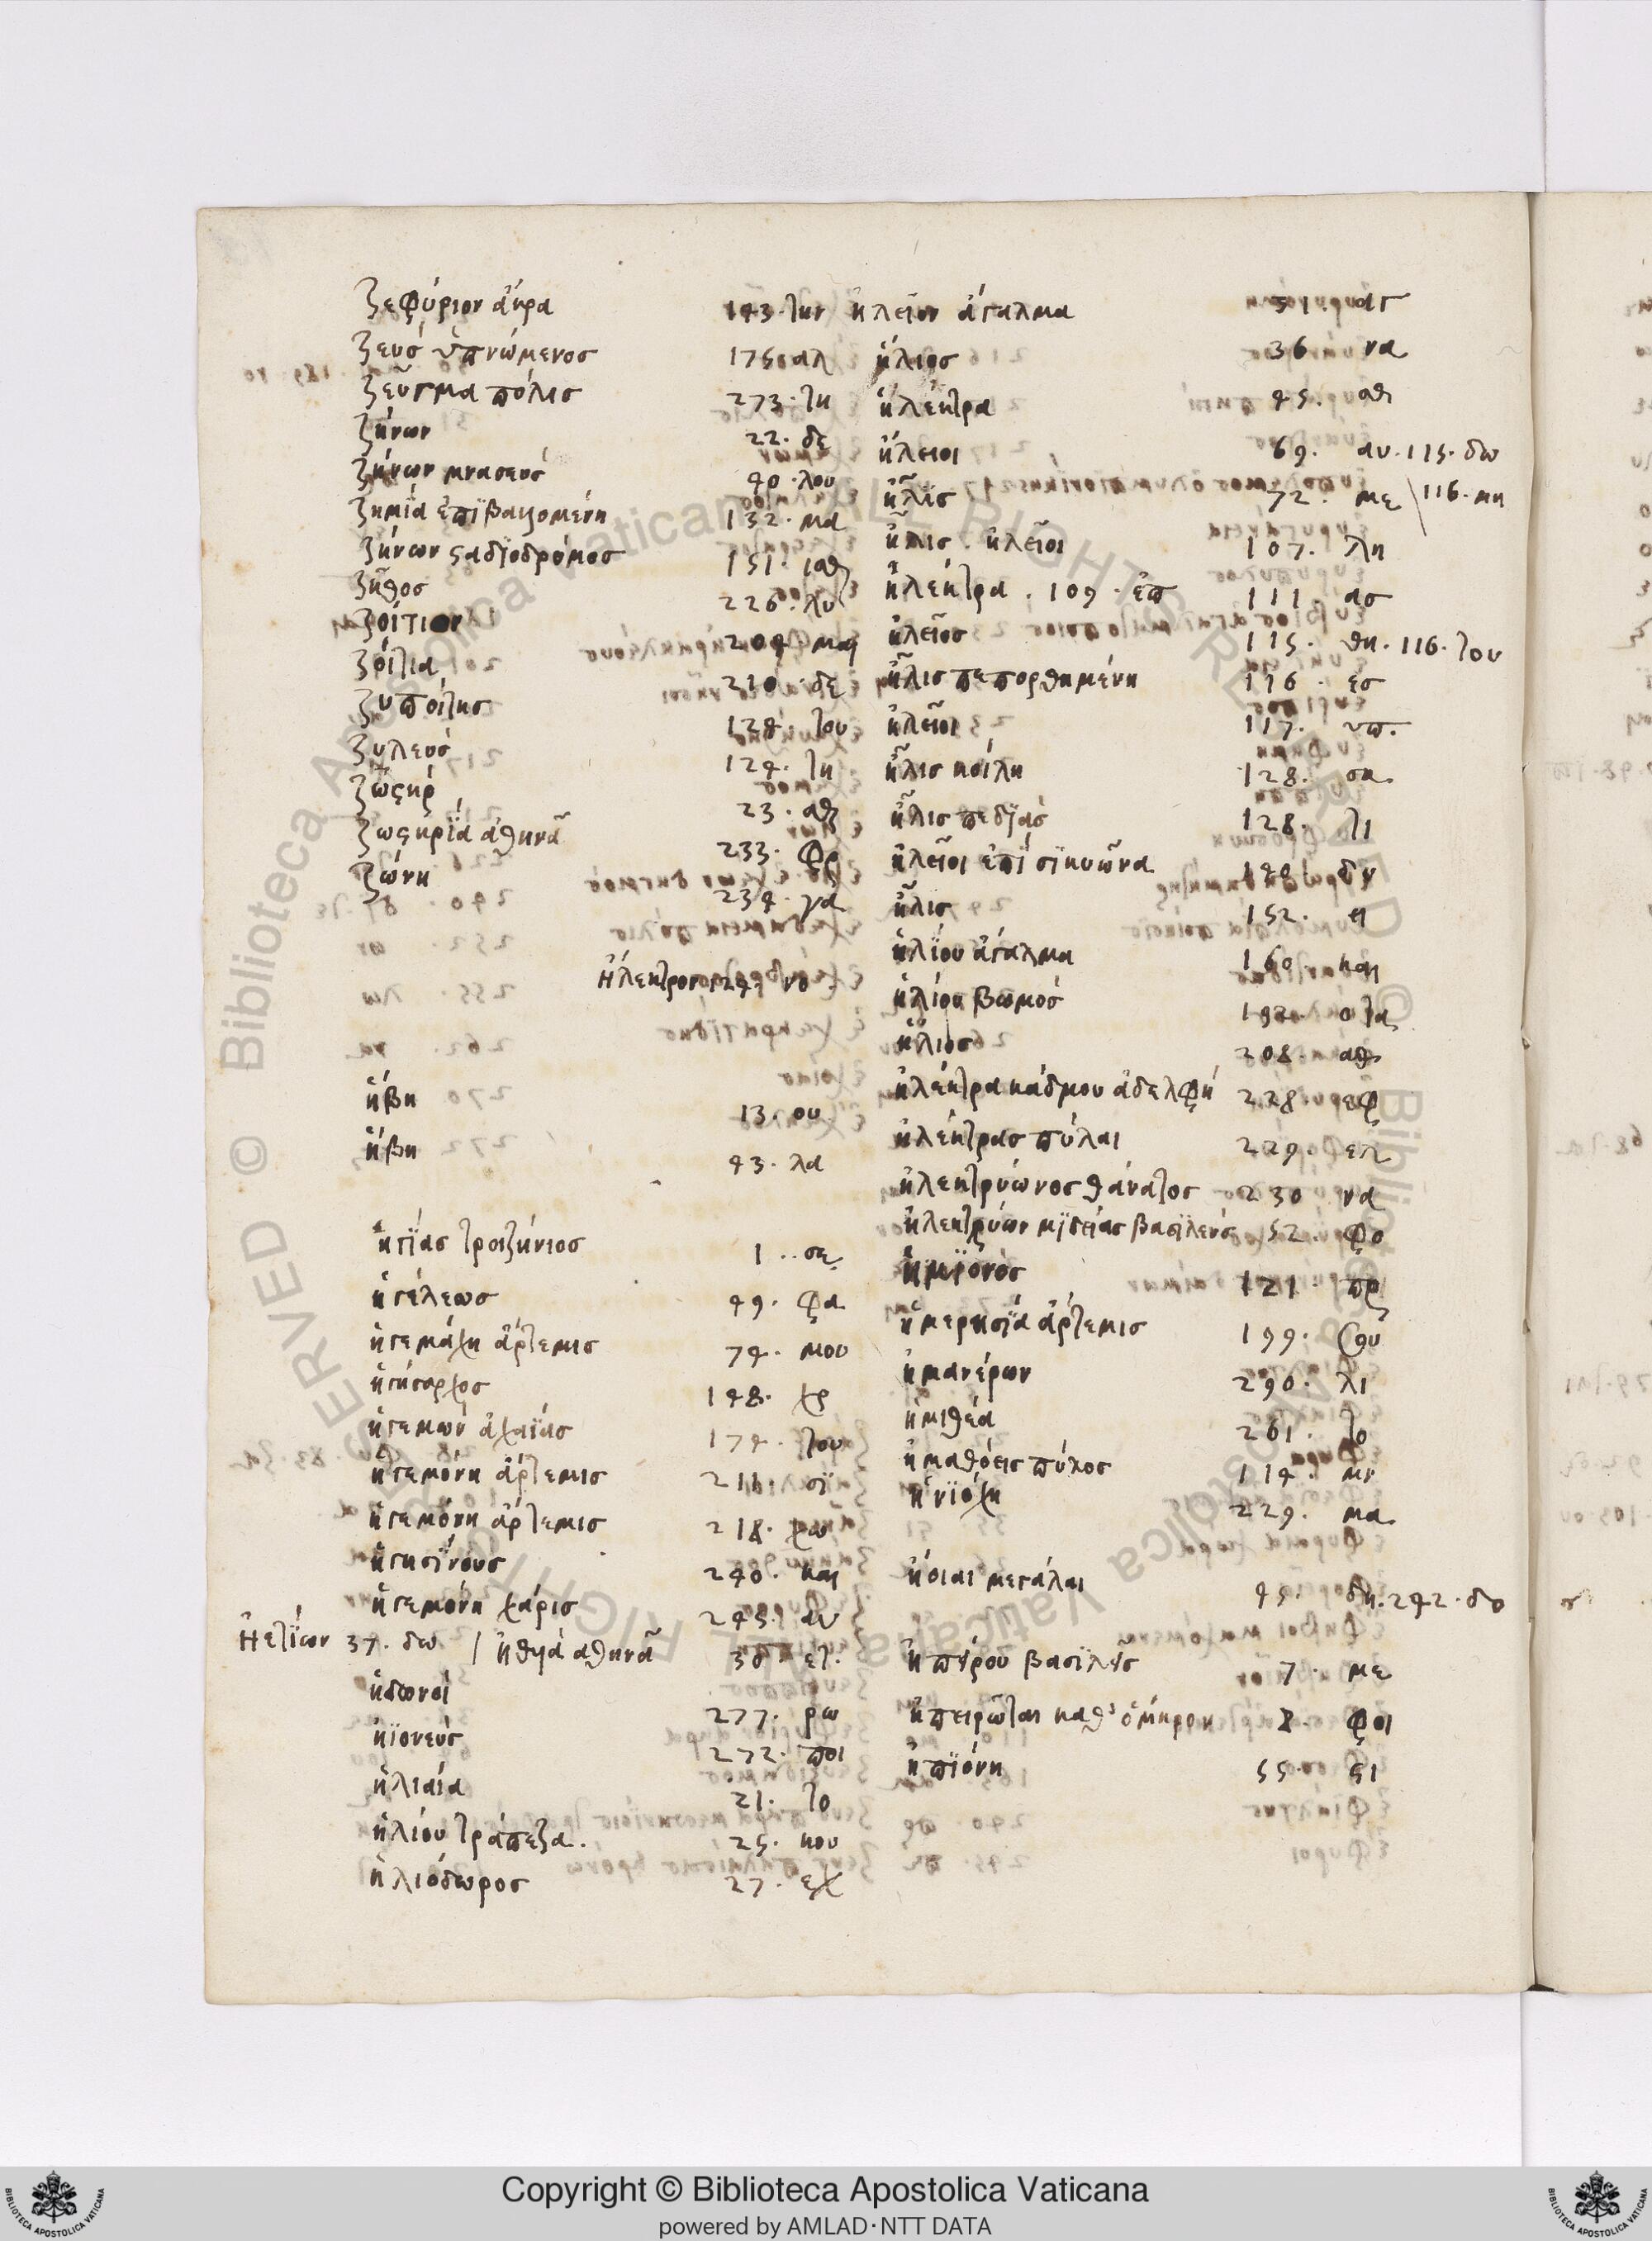 ζεφύριον ἄκρα 143. την
ζευσ ὑπνώμενος 175. αλ
ζεῦγμα πόλισ 273. τη
ζήνων 22. δε
ζήνων μνασευσ 40. λου
ζημία ἐπιβαλλομένη 132. μα
ζήνων ςαδιοδρόμοσ 151. ιαθ
ζῆθος 226. λυ
ζοίτιον 204 μαι
ζοίτια 210. δε
ζυποίτης 128. του
ζυλευσ 124. τη
ζωςηρ 23. αθ
ζωςηρία ἀθηνᾶ 233. φρ
ζώνη 234. γα
Ἠλεκτρον 124. νο
ἥβη 13. ου
ἥβη 43. λα
ἡγίας τροιζήνιοσ 1.. σε
ἡγέλεωσ 49. φα
ἡγεμάχη ἄρτεμισ 74. μου
ἡγήσαρχος 148. χρ
ἡγεμων ἀχαϊάσ 174. του
ἡγεμόνη ἄρτεμισ 211. σϊ
ἡγεμόνη ἄρτεμισ 218. χω
ἡγησίνους 240. και
ἡγεμόνη χάρισ 245. αυ
Ἠετίων 37. δω / ἠθυα ἀθηνᾶ 38 ετ.
ἠδωνοί 277. ρω
ἠϊονεύσ 272. ποι
ἡλιαία 21. το
ἡλίου τράπεζα. 25. κου
ἡλιόδωρος 27. εχ
ἠλεῖον ἄγαλμα 51. αγ
ἥλιοσ 36 να
ἠλέκτρα 45. αθ
ἠλειοι 69. αυ. 115. δω
ἦλισ 72. με \ 116. μη
ἦλισ. ἠλεῖοι 107. λη
ἠλέκτρα. 109. ἐπ 111. ασ
ἠλεῖοσ 115. θη. 116. του
ἦλισ πεπορθημένη 116. εσ
ἠλεῖοι 117. υπ.
ἦλισ κοίλη 128. ση
ἦλισ πεδιάσ 128. τι
ἠλεῖοι ἐπι σικυῶνα 148. δη
ἦλισ 152. ει
ἡλίου ἄγαλμα 160. και
ἡλίου βωμοσ 192. οτα
ἥλιοσ 208. αθ
ἠλέκτρα κάδμου ἀδελφη 228. εφ
ἠλέκτρασ πύλαι 229 επ
ἠλεκτρύωνοσ θάνατος 230 να
ἠλεκτρύων μϊδείασ βασιλευσ 52. φο
ἡμίονοσ 121. πρ
ἡμερησία ἄρτεμισ 199. ου
ἡμανέρων 290. λι
ἡμιθέα 261. το
ἠμαθόεισ πύλος 114. μν
ἡνιόχη 229. μα
ἠοιαι μεγάλαι 45. δη. 242. δο
ἠπείρου βασιλεῖσ 7. με
ἠπειρῶται καθ' ὁμηρον 8. φοι
ἠπιόνη 55. ςι
Copyright © Biblioteca Apostolica Vaticana
powered by AMLAD·NTT DATA